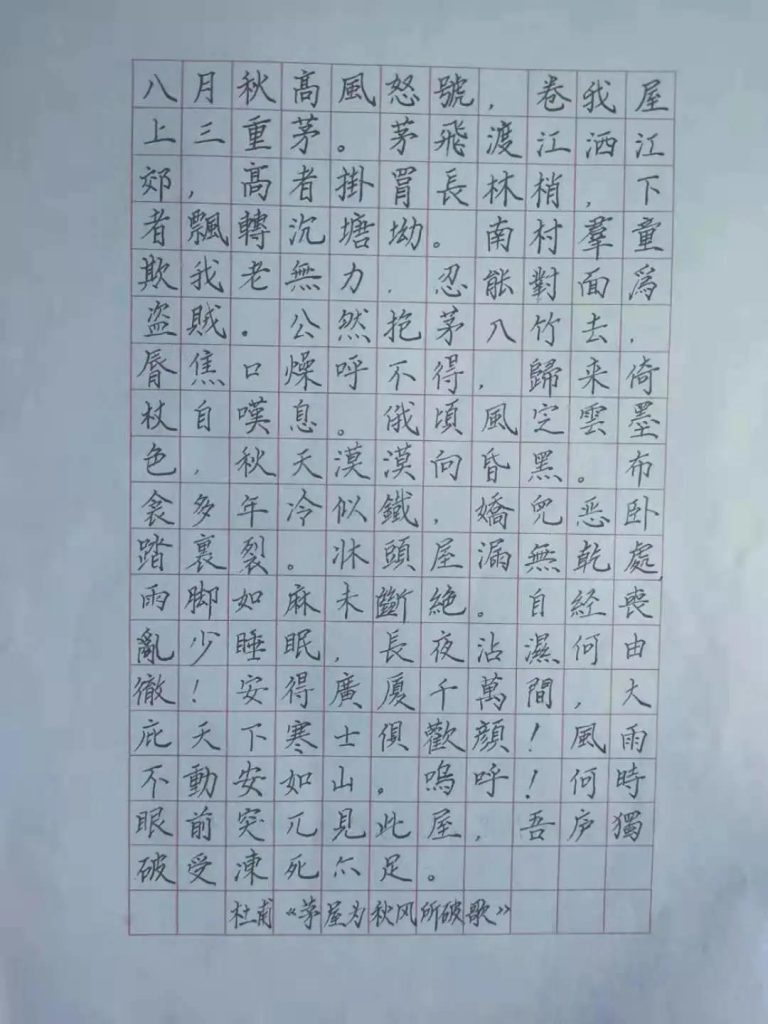 八月秋高風怒號，卷我屋
上三重茅。茅飛渡江洒江
郊，高者掛罥長林梢，下
者飄轉沉塘坳。南村羣童
欺我老無力，忍能對面為
盗賊。公然抱茅入竹去，
脣焦口燥呼不得，歸来倚
杖自嘆息。俄頃風定雲墨
色，秋天漠漠向昏黑。布
衾多年冷似鐵，嬌兒恶卧
踏裏裂。牀頭屋漏無乾處，
雨脚如麻未斷絶。自經喪
亂少睡眠，長夜沾濕何由
徹！安得廣厦千萬間，大
庇天下寒士俱歡顔！風雨
不動安如山。嗚呼！何時
眼前突兀見此屋，吾庐獨
破受凍死亦足。
杜甫《茅屋为秋风所破歌》